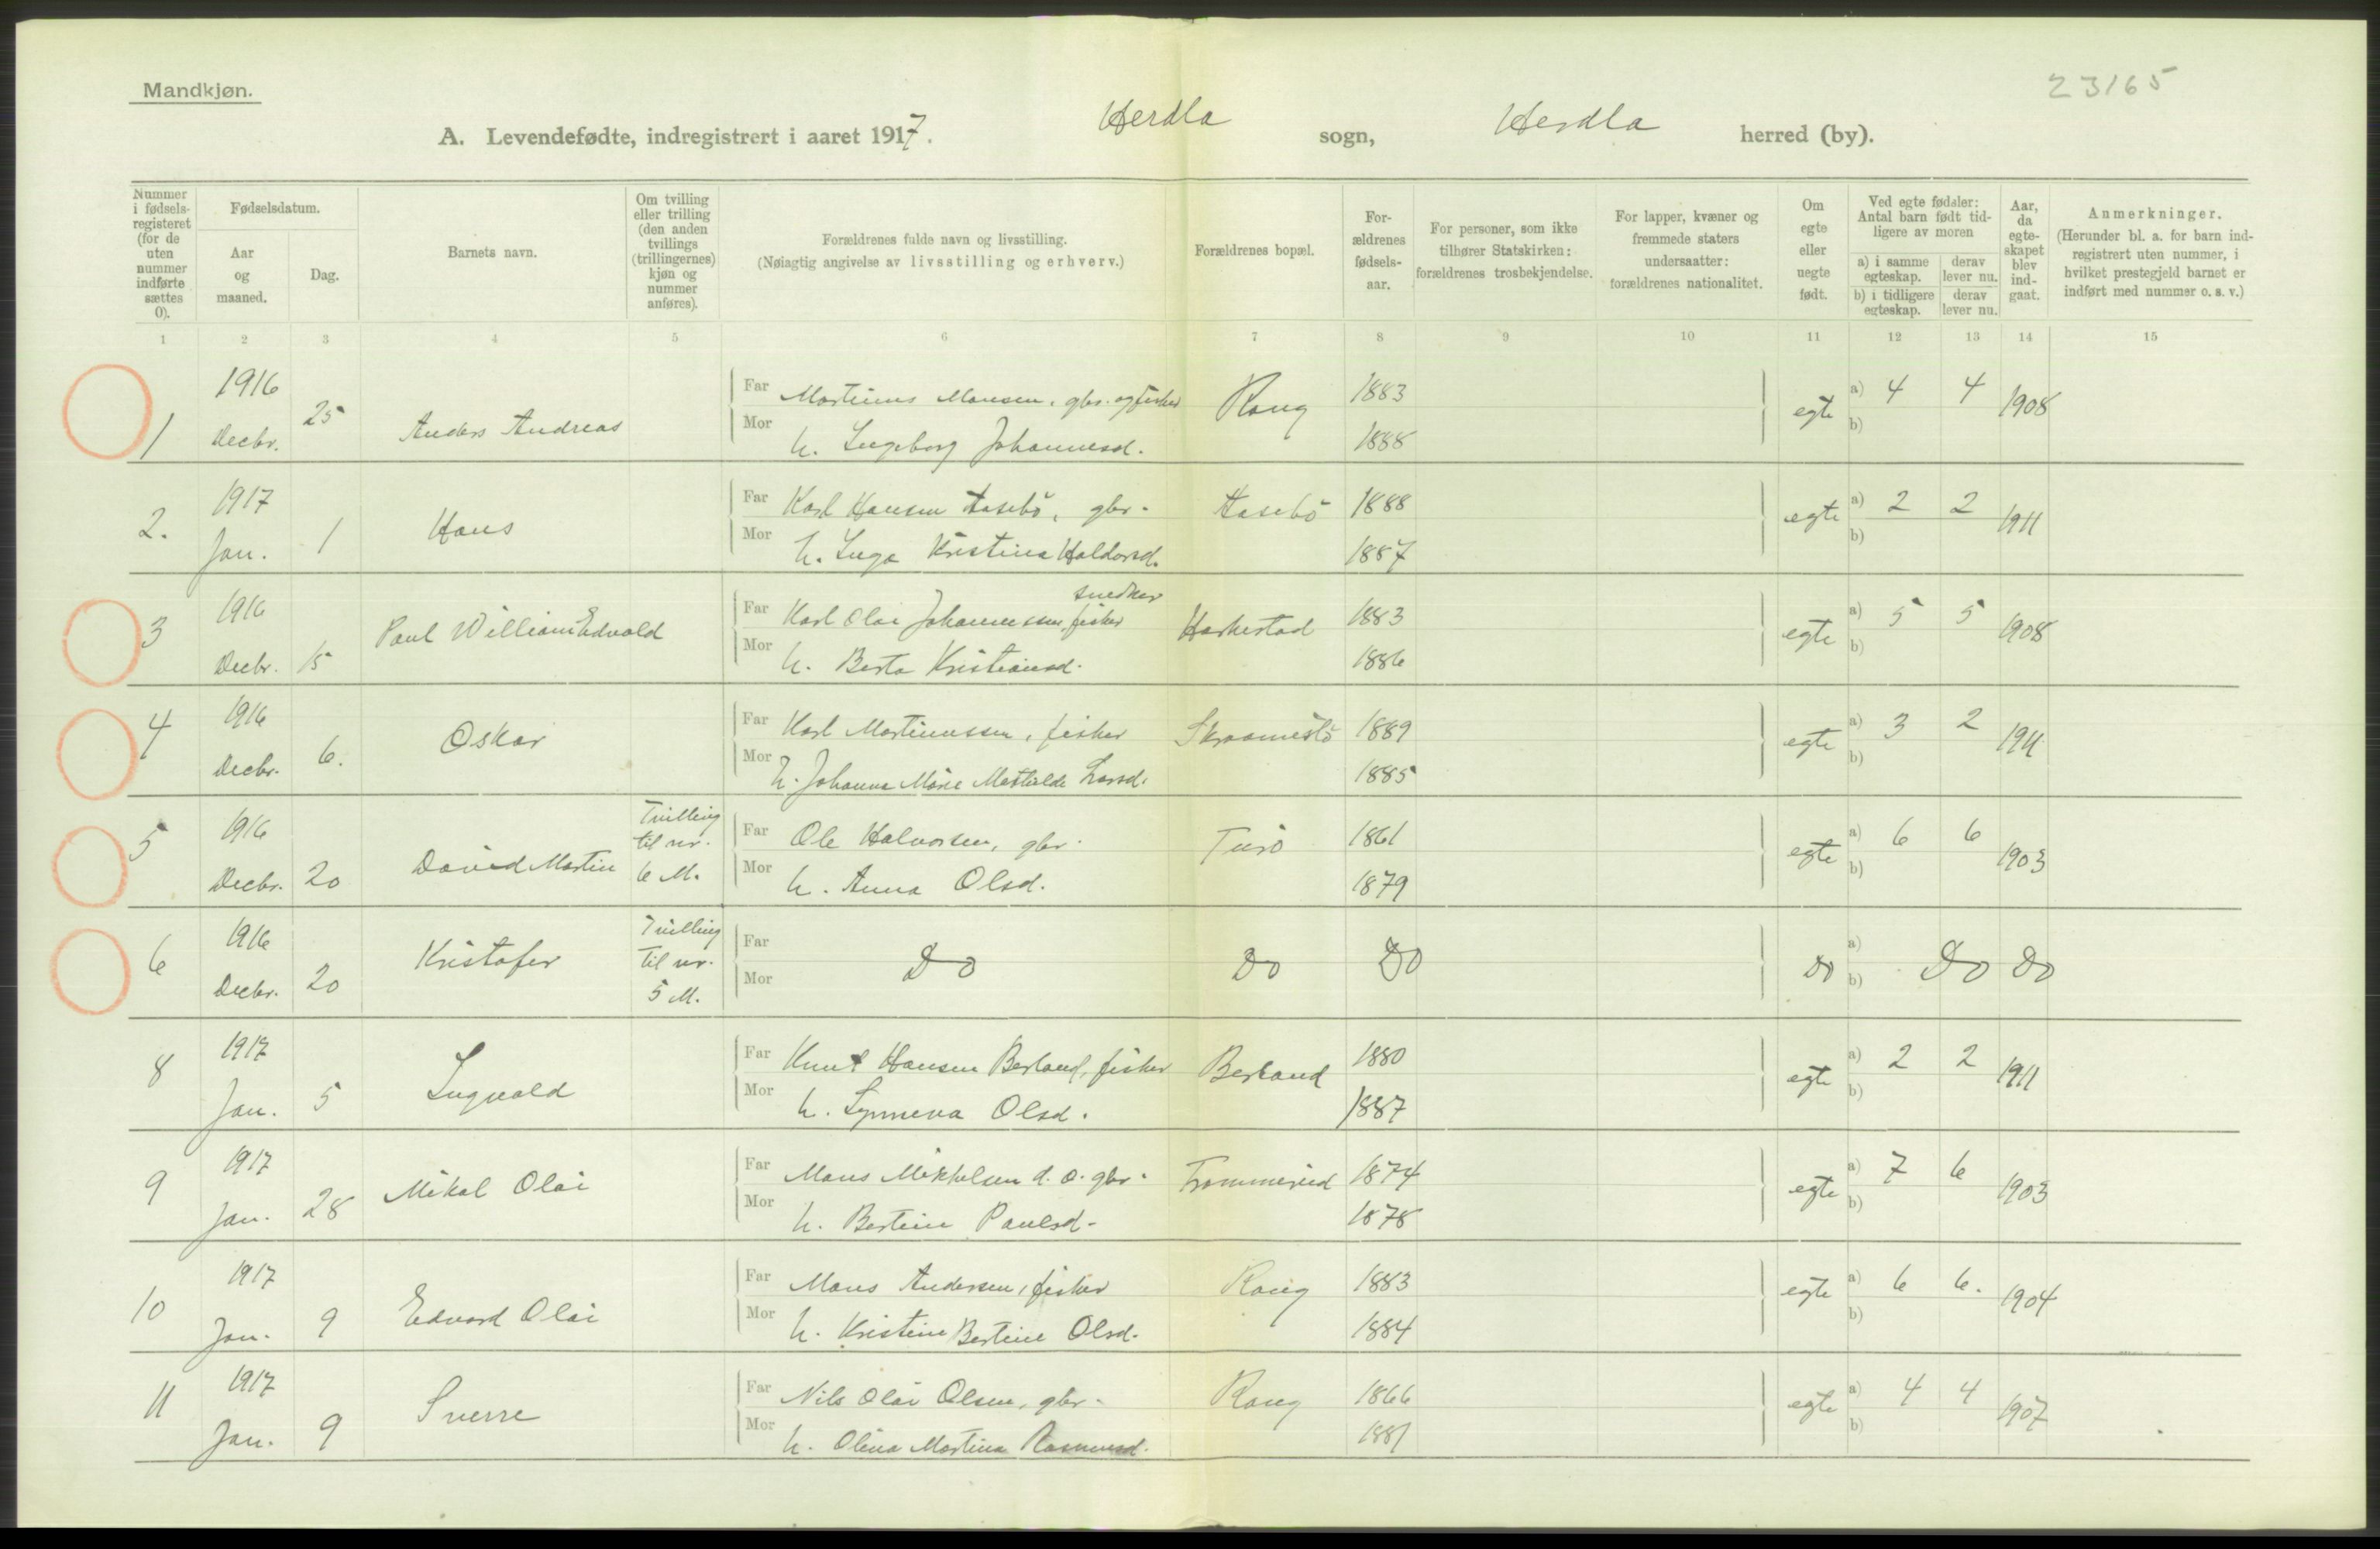 Mandkjøn.
23165
A. Levendefødte, indregistrert i aaret 1917. Herdla sogn, Herdla herred (by).
Nummer i fødsels-registeret (for de uten nummer indførte sættes 0).
Fødselsdatum.
Aar og maaned.
Dag.
Barnets navn.
Om tvilling eller trilling (den anden tvillings (trillingernes) kjøn og nummer anføres).
Forældrenes fulde navn og livsstilling.
(Nøiagtig angivelse av livsstilling og erhverv.)
Forældrenes bopæl.
For-ældrenes fødsels-aar.
For personer, som ikke tilhører Statskirken: forældrenes trosbekjendelse.
For lapper, kvæner og fremmede staters undersaatter: forældrenes nationalitet.
Om egte eller uegte født.
Ved egte fødsler: Antal barn født tid-ligere av moren
a) i samme egteskap. derav lever nu.
b) i tidligere egteskap. derav lever nu.
Aar, da egte-skapet blev ind-gaat.
Anmerkninger.
(Herunder bl. a. for barn ind-registrert uten nummer, i hvilket prestegjeld barnet er indført med nummer o. s. v.)
1 2 3 4 5 6 7 8 9 10 11 12 13 14 15
1 1916 Decbr. 25 Anders Andreas Far Martinus Monsen, gbr. og fisker Rong 1883 egte a) 4 4 1908
Mor h. Ingeborg Johannesd. 1888 b)
2. 1917 Jan. 1 Hans Far Karl Hansen Aasebö, gbr. Aasebö 1888 egte a) 2 2 1911
Mor h. Inga Kristina Haldorsd. 1887 b)
3 1916 Decbr. 15 Paul William Edvald Far Karl Olai Johannessen, fisker snedker Harkestad 1883 egte a) 5 5 1908
Mor h. Berta Kristiansd. 1886 b)
4 1916 Decbr. 6. Oskar Far Karl Martinussen, fisker 1889 egte a) 3 2 1911
Mor h. Johanna Marie Larsd. 1885 b)
5 1916 Decbr. 20 David Martin Tvilling til nr. 6 M. Far Ole Halvorsen, gbr. Turö 1861 egte a) 6 6 1903
Mor h. Anna Olsd. 1879 b)
6 1916 Decbr. 20 Kristofer Tvilling til nr. 5 M. Far Mor Do Do Do Do a) b) Do Do
8 1917 Jan. 5 Ingvald Far Knut Hansen Berland, fisker Berland 1880 egte a) 2 2 1911
Mor h. Synneva Olsd. 1887 b)
9 1917 Jan. 28 Mikal Olai Far Mons Mikkelsen d. o. gbr. 1874 egte a) 7 6 1903
Mor h. Bertine Paulsd. 1878 b)
10 1917 Jan. 9 Edvard Olai Far Mons Andersen, fisker Rong 1883 egte a) 6 6. 1904
Mor h. Kristine Bertine Olsd. 1884 b)
11 1917 Jan. 9 Sverre Far Nils Olai Olsen, gbr. Rong 1866 egte a) 4 4 1907
Mor h. Olina Martina Rasmusd. 1881 b)